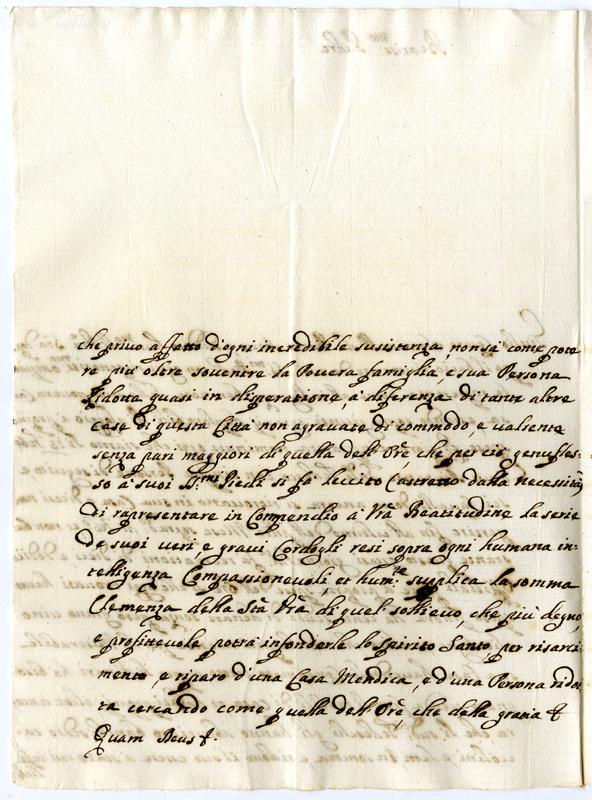 che privo affatto d'ogni incredibile susistenza, non sà come pote
re più oltre soventre la Povera famiglia, e sua Persona
Ridotta quasi in disperatione, à diferenza di tante altre
case di questa Città non agravate di commodo, e valsente
senza pari maggiori di quella dell' Ore, che per ciò genufles=
so à suoi SS.mi Piedi si fà leccito Castretto dalla necessità
di rapresentare in Compendio à Vrã Beatitudine la serie
de suoi veri, e gravi Cordogli resi sopra ogni humana in=
telligenza Compassionevoli, et hum.te supplica la somma
Clemenza della Stà Vrã di quel sollievo, che più degno,
e profittevole potrà infonderle lo Spirito Santo, per risarci=
mento, e riparo d'una Casa Mendica, e d'una Persona ridot
ta cercando come quella dell' Ore, che della gracia &
Quam Deus &.